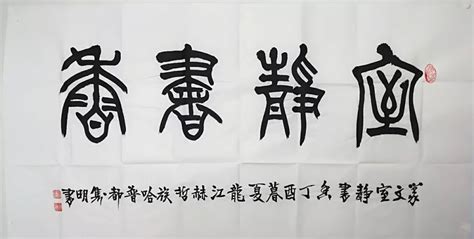 室靜書香
篆文室靜書香丁酉暮夏龍江赫哲族哈普都·隽明書